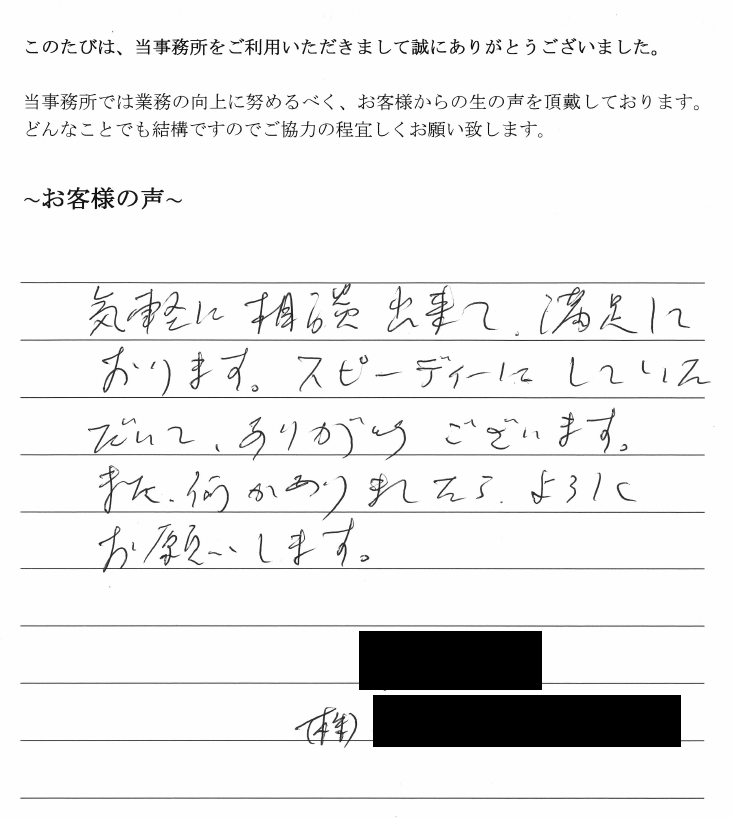 このたびは、当事務所をご利用いただきまして誠にありがとうございました。
当事務所では業務の向上に努めるべく、お客様からの生の声を頂戴しております。
どんなことでも結構ですのでご協力の程宜しくお願い致します。
~お客様の声~
気軽に相談出来て、満足して
おります。スピーディーにしていた
だいて、ありがとうございます。
また、何かありましたら、よろしく
お願いします。
(株)